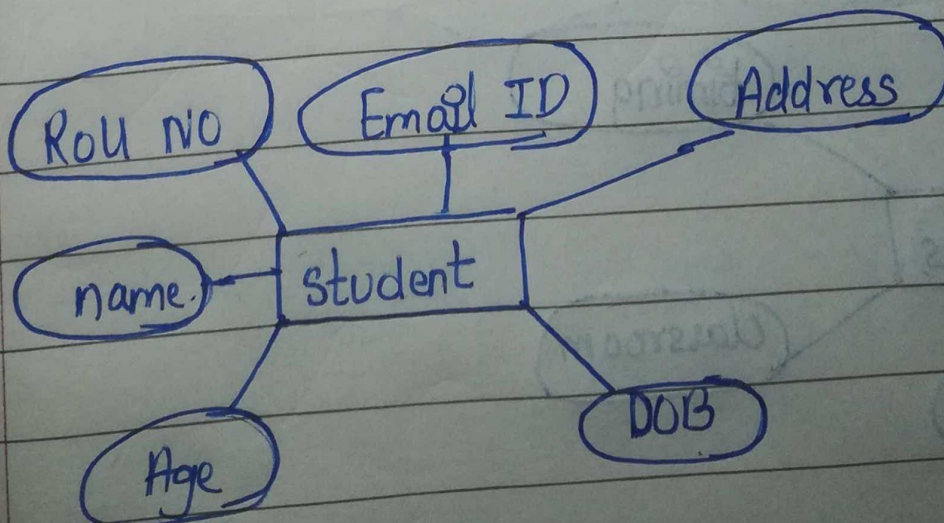 Roll NO
Email ID
Address
name.
Student
Age
DOB
Classroom